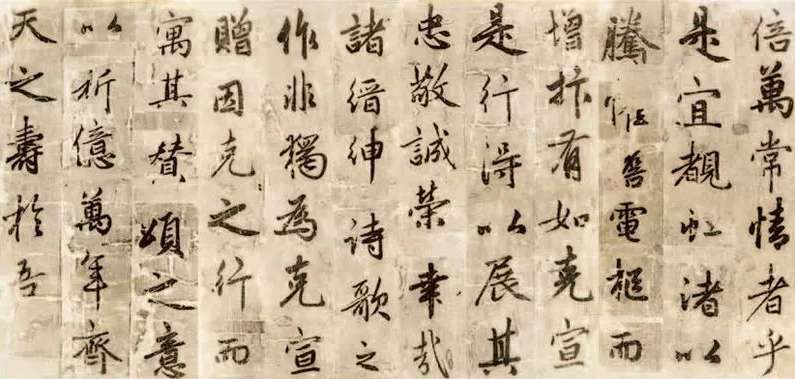 倍萬常情者乎
是宜覩虹渚以
騰懽電樞而
增抃有如克宣
是行得以展其
忠敬誠榮幸哉
諸縉紳詩歌之
作非獨為克宣
贈因克之行而
寓其贊頌之意
以祈億萬年齊
天之壽於吾